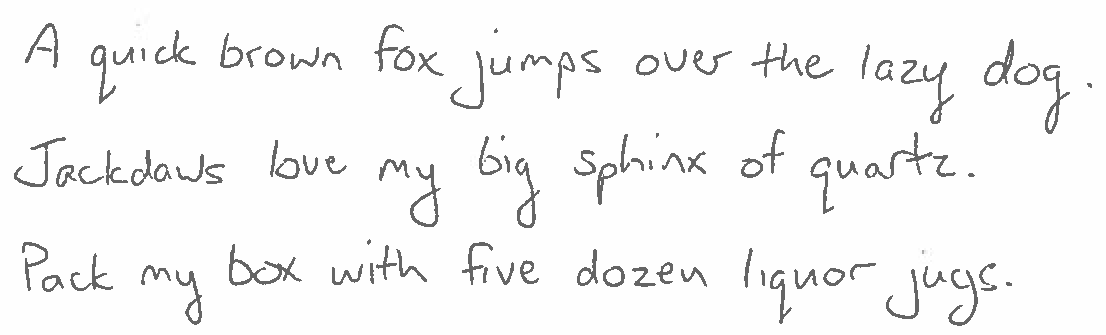 A quick brown fox jumps over the lazy dog.
Jackdaws love my big sphinx of quartz.
Pack my box with five dozen liquor jugs.